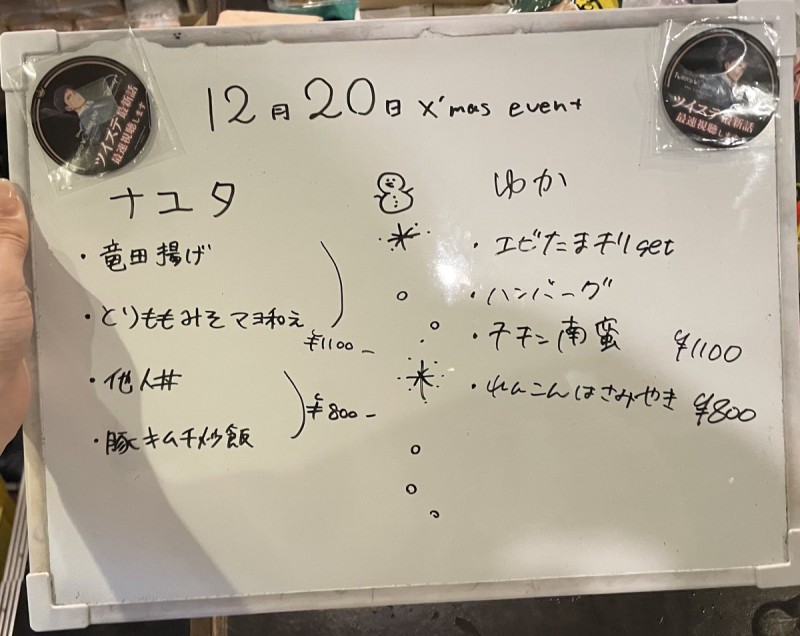 12月20日 X'mas event
ツイステ最新話
最速視聴します
ツイステ最新話
最速視聴します
ナユタ
・竜田揚げ
・とりももみそマヨ和え
¥1100-
・他人丼
¥800-
・豚キムチ炒飯
ゆか
・エビたまチリset
・ハンバーグ
・チキン南蛮 ¥1100
・れんこんはさみやき ¥800